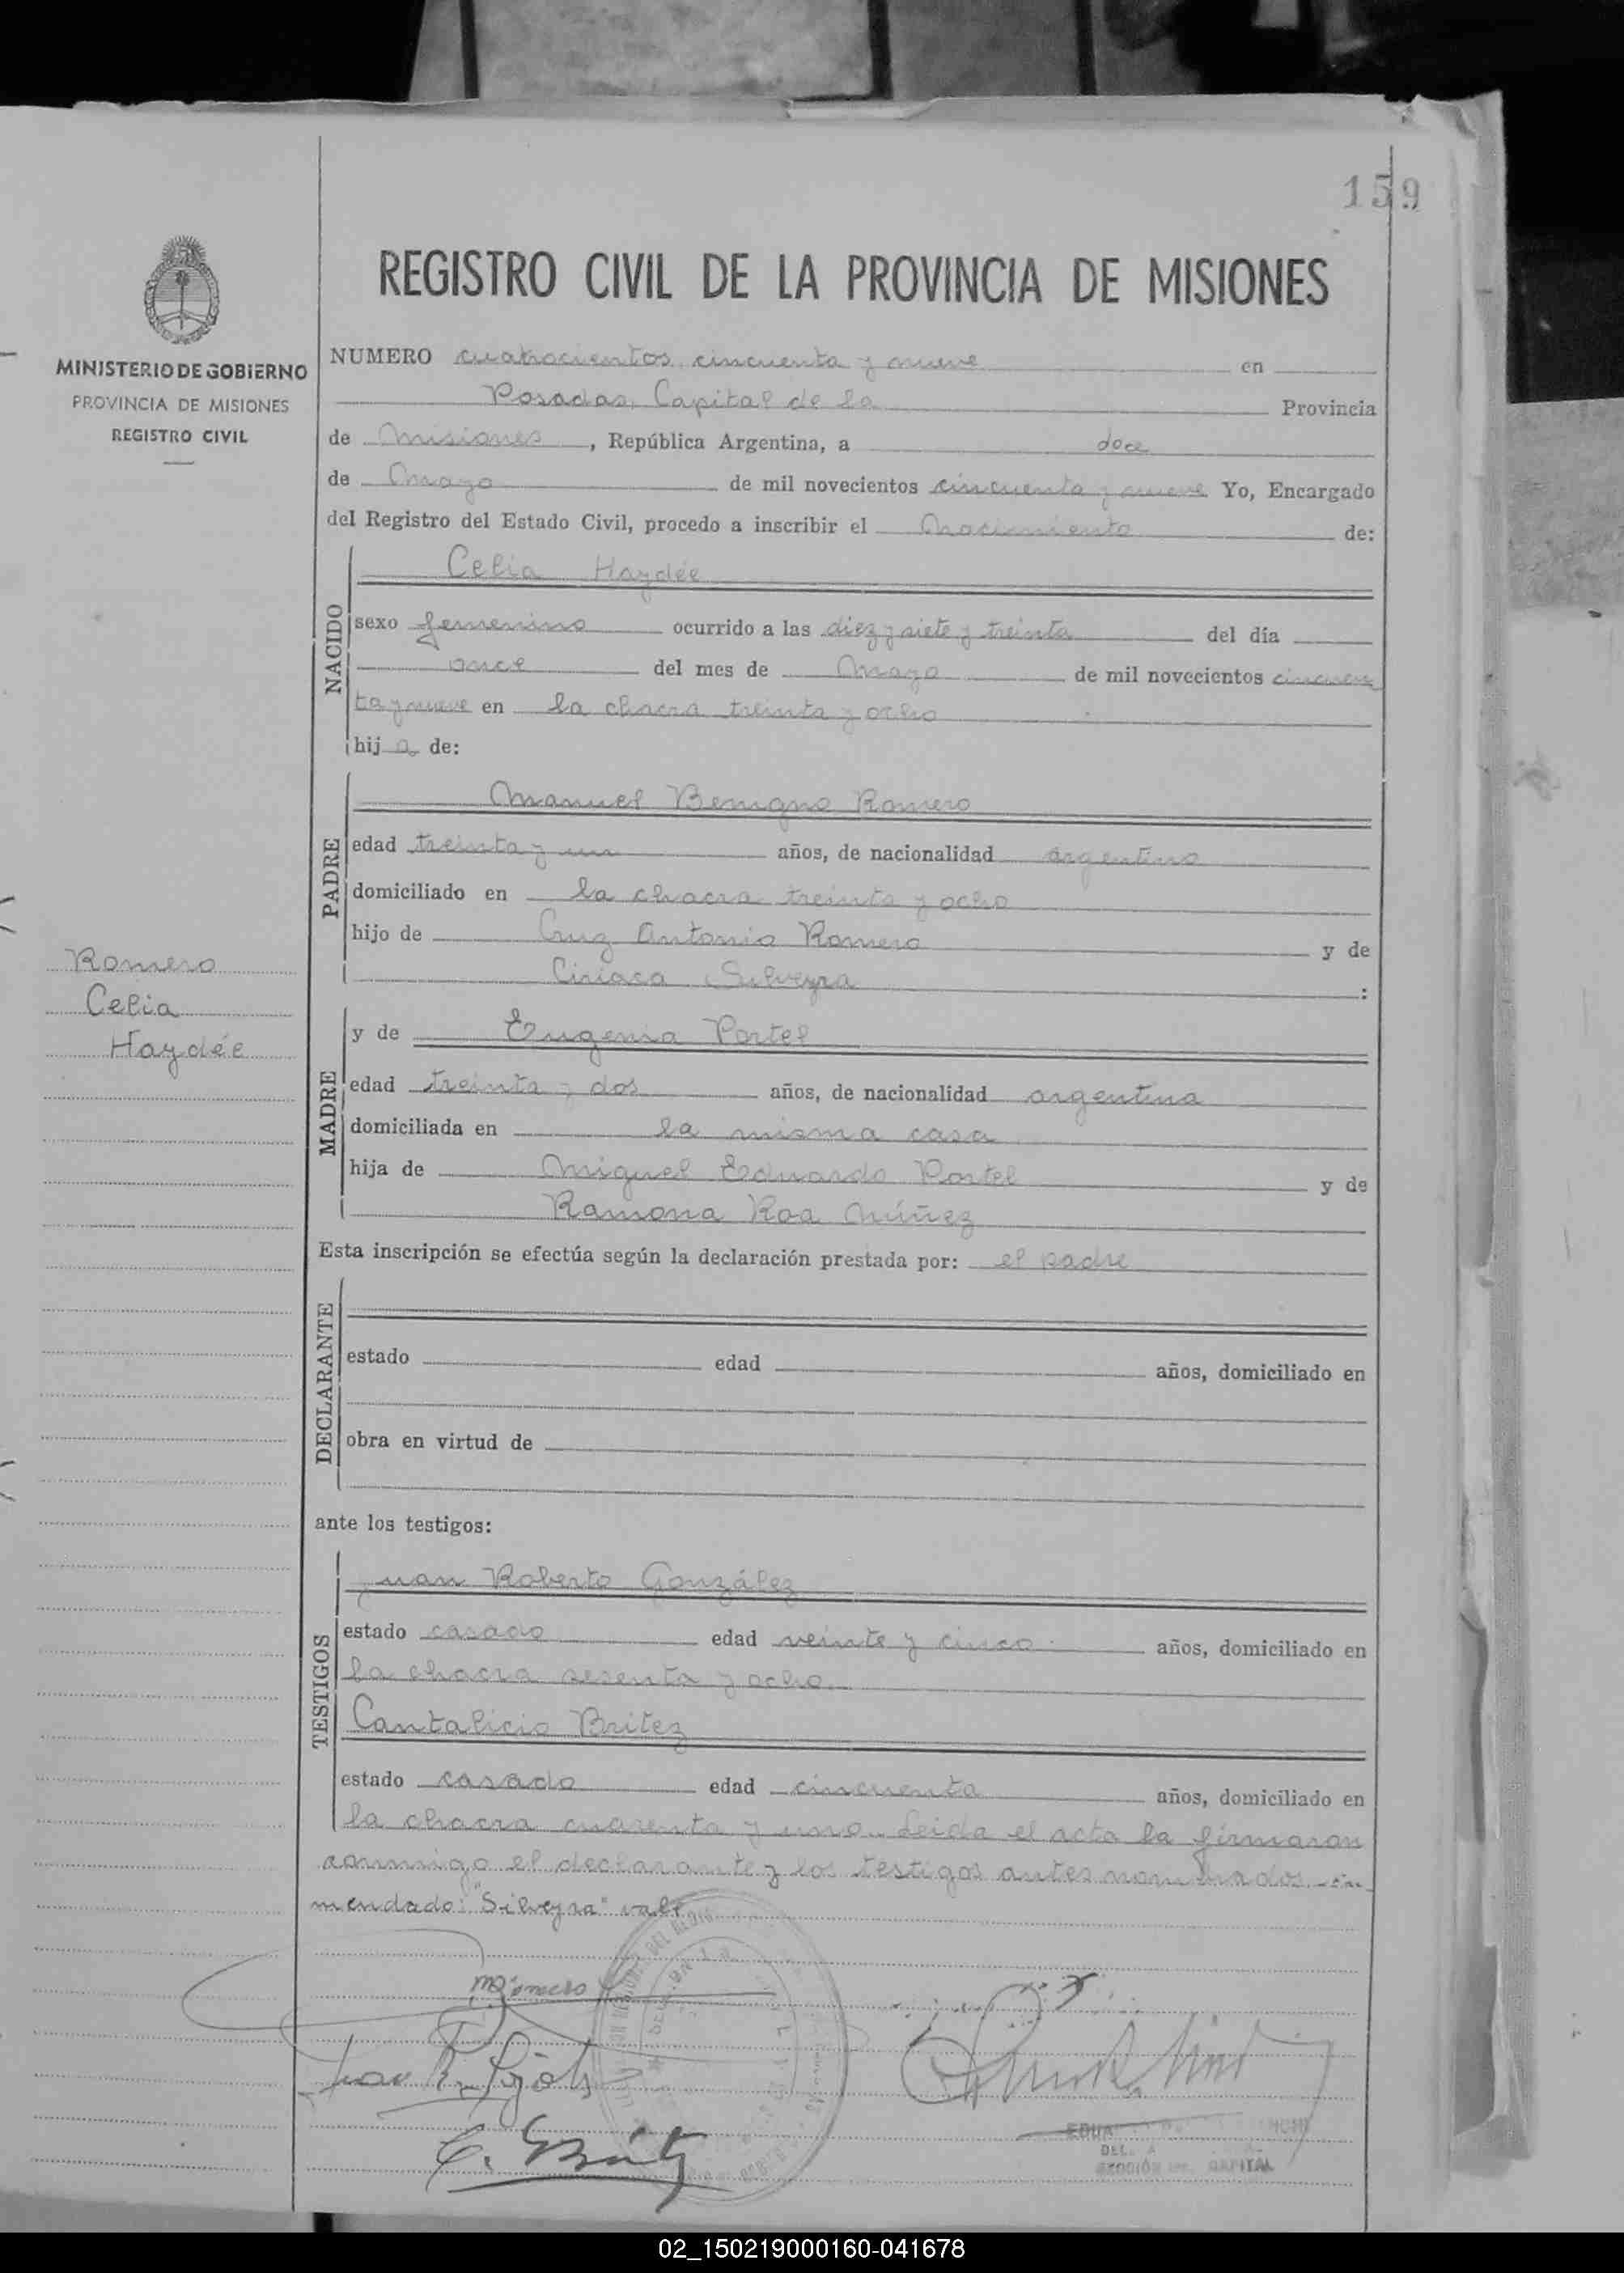 159
REGISTRO CIVIL DE LA PROVINCIA DE MISIONES
MINISTERIO DE GOBIERNO
PROVINCIA DE MISIONES
REGISTRO CIVIL
NUMERO cuatrocientos cincuenta y nueve en
Posadas, Capital de la Provincia
de Misiones, República Argentina, a doce
de Mayo de mil novecientos cincuenta y nueve Yo, Encargado
del Registro del Estado Civil, procedo a inscribir el Nacimiento de:
NACIDO
Celia Haydée
sexo femenino ocurrido a las diez y siete y treinta del día
once del mes de Mayo de mil novecientos cincuen
ta y nueve en la chacra treinta y ocho
hija de:
PADRE
Manuel Benigno Romero
edad treinta y un años, de nacionalidad argentino
domiciliado en la chacra treinta y ocho
hijo de Cruz Antonio Romero y de
Ciriaca Silveyra :
Romero
Celia
Haydée
MADRE
y de Eugenia Portel
edad treinta y dos años, de nacionalidad argentina
domiciliada en la misma casa
hija de Miguel Eduardo Portel y de
Ramona Roa Núñez
Esta inscripción se efectúa según la declaración prestada por: el padre
DECLARANTE
estado edad años, domiciliado en
obra en virtud de
ante los testigos:
TESTIGOS
Juan Roberto González
estado casado edad veinte y cinco años, domiciliado en
la chacra sesenta y ocho
Cantalicio Britez
estado casado edad cincuenta años, domiciliado en
la chacra cuarenta y uno. Leida el acta la firmaron
conmigo el declarante y los testigos antes nombrados. En
mendado: "Silveyra" vale
C. Britez
CAPITAL
02_150219000160-041678